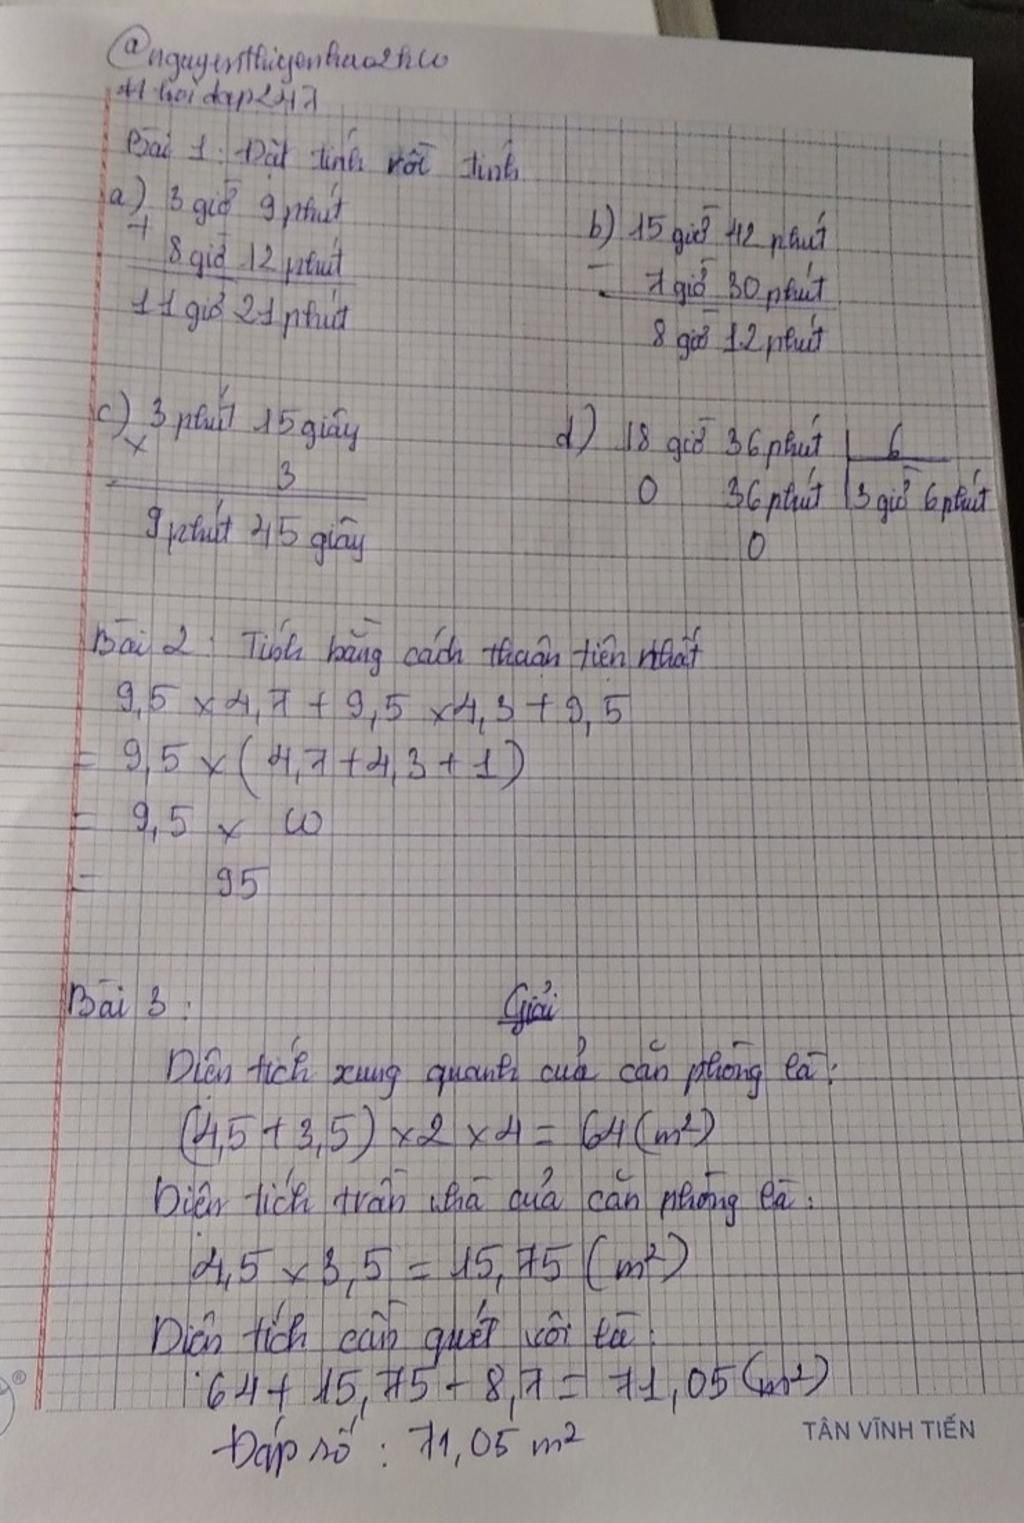 Bài 1: Đặt tính rồi tính
a) 3 giờ 9 phút
+
8 giờ 12 phút
11 giờ 21 phút
b) 15 giờ 42 phút
-
7 giờ 30 phút
8 giờ 12 phút
c) 3 phút 15 giây
x
3
9 phút 45 giây
d) 18 giờ 36 phút 6
0 36 phút 3 giờ 6 phút
0
Bài 2: Tính bằng cách thuận tiện nhất
9,5 x 4,7 + 9,5 x 4,3 + 9,5
= 9,5 x ( 4,7 + 4,3 + 1 )
= 9,5 x 10
= 95
Bài 3: Giải
Diện tích xung quanh của căn phòng là:
(4,5 + 3,5) x 2 x 4 = 64 (m²)
Diện tích trần nhà của căn phòng là:
4,5 x 3,5 = 15,75 (m²)
Diện tích cần quét vôi là:
64 + 15,75 - 8,7 = 71,05 (m²)
Đáp số: 71,05 m²
TÂN VĨNH TIẾN